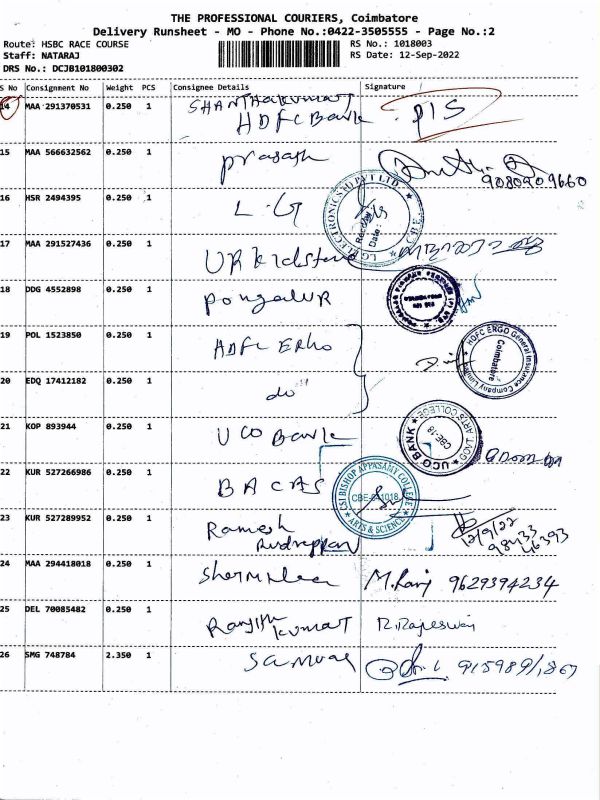 THE PROFESSIONAL COURIERS, Coimbatore
Delivery Runsheet - MO - Phone No.:0422-3505555 - Page No.:2
Route: HSBC RACE COURSE RS No.: 1018003
Staff: NATARAJ RS Date: 12-Sep-2022
DRS No.: DCJB101800302
S No Consignment No Weight PCS Consignee Details Signature
14 MAA 291370531 0.250 1 SHANTHAKUMAR
HDFC Bank
15 MAA 566632562 0.250 1 Prasash
9080909660
16 HSR 2494395 0.250 1 L.G LG ELECTRONICS (I) PVT LTD CBE Received Date:
17 MAA 291527436 0.250 1
18 DDG 4552898 0.250 1 Pongalur
19 POL 1523850 0.250 1 HDFC Ergo HDFC ERGO General Insurance Company Limited Coimbatore
20 EDQ 17412182 0.250 1 do"
21 KOP 893944 0.250 1 UCO Bank UCO BANK GOVT. ARTS COLLEGE CBE-18
22 KUR 527266986 0.250 1 BACAS CSI BISHOP APPASAMY COLLEGE ARTS & SCIENCE CBE-641018
23 KUR 527289952 0.250 1 Ramesh
Rudrappan 12/9/22
98433
46393
24 MAA 294418018 0.250 1 M.Ranj 9629394234
25 DEL 70085482 0.250 1 Ranjith
kumar R.Rajeswari
26 SMG 748784 2.350 1 Samuel